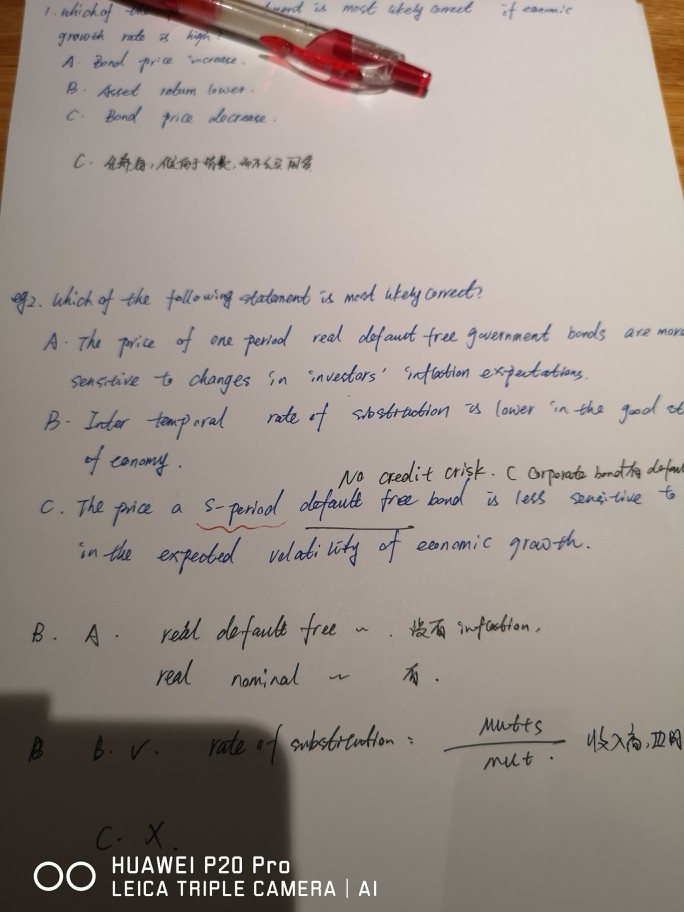 1. which of the is most likely correct if economic
growth rate is high?
A. Bond price increase.
B. Asset return lower.
C. Bond price decrease.
C.
eg2. which of the following statement is most likely correct?
A. The price of one period real default free government bonds are more
sensitive to changes in investors' inflation expectations.
B. Inter temporal rate of is lower in the good
of economy.
No credit crisk. C corporate bond有
C. The price a s-period default free bond is less sensitive to
in the expected volatility of economic growth.
B. A. real default free ~ . 没有 inflation,
real nominal ~ 有.
B B. √. rate of :
mut+s
mut.
收入高,
C. X.
HUAWEI P20 Pro
LEICA TRIPLE CAMERA | AI